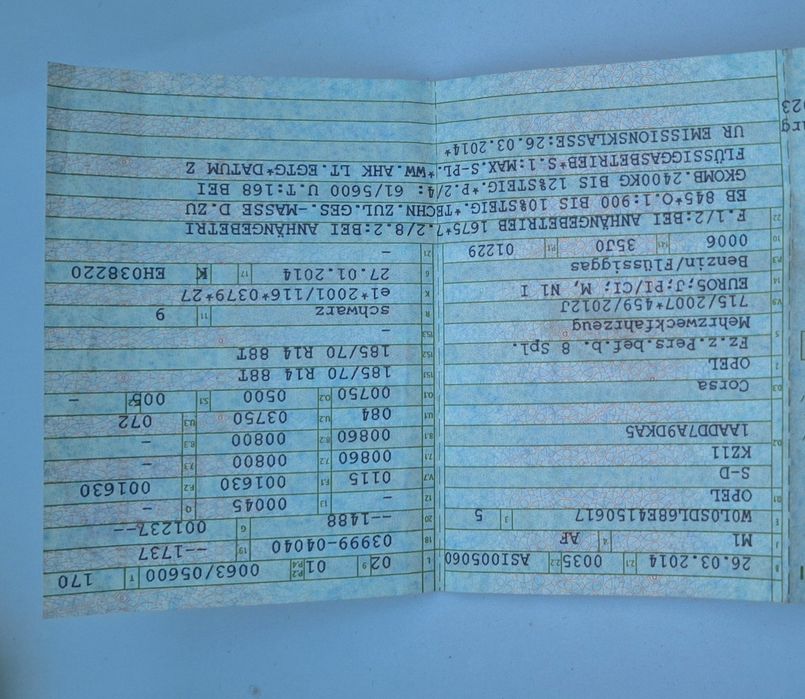 B 26.03.2014 2.1 0035 2.2 ASI005060
J M1 4 AF
E W0L0SDL68E4150617 3 5
D.1 OPEL
S-D
D.2 KZ11
1AADD7A9DKA5
D.3 Corsa
2 OPEL
Fz.z.Pers.bef.b. 8 Spl.
5 Mehrzweckfahrzeug
V.9 715/2007*459/2012J
14 EURO5;J;PI/CI; M, N1 I
P.3 Benzin/Flüssiggas
10 0006 14.1 35J0 P.1 01229
L 02 9 01 P.2 P.4 0063/05600 T 170
18 03999-04040 19 --1737
20 --1488 G 001237--
12 - 13 00045 Q -
V.7 0115 F.1 001630 F.2 001630
7.1 00860 7.2 00800 7.3 -
8.1 00860 8.2 00800 8.3 -
U.1 084 U.2 03750 U.3 072
O.1 00750 O.2 0500 S.1 005 S.2 -
15.1 185/70 R14 88T
15.2 185/70 R14 88T
15.3 -
R schwarz 11 9
K e1*2001/116*0379*27
6 27.01.2014 17 K EH038220
21 -
22 F.1/2:BEI ANHÄNGEBETRIEB 1675*7.2/8.2:BEI ANHÄNGEBETRI
EB 845*O.1:900 BIS 10%STEIG.*TECHN.ZUL.GES.-MASSE D.ZU
GKOMB.2400KG BIS 12%STEIG.*P.2/4: 61/5600 U.T:168 BEI
FLÜSSIGGASBETRIEB*S.1:MAX.S-PL.*WW.AHK LT.EGTG*DATUM Z
UR EMISSIONSKLASSE:26.03.2014*